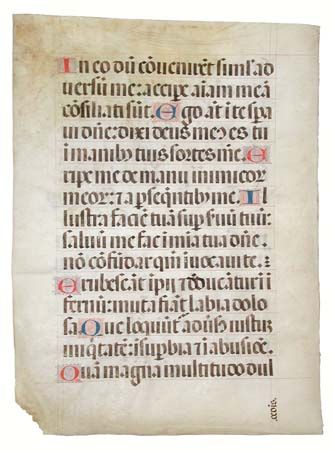 In eo dū cōvenirēt simł ad
versū me: accipe aīam meā
cōsiliati sūt. Ego aūt ī te spa
vi dn̄e: dixi deus meꝰ es tu
ī manibꝰ tuis sortes meē. E
ripe me de manu inimicor
meor: ⁊ a pseq̄ntibꝰ me. Il
lustra faciē tuā sup s̄vū tuū:
salvū me fac ī mīa tua dn̄e:
nō cōfūdar qm̄ īvocavi te.
Erubescāt īpii ⁊ deducātur ī
ifernū: muta fiāt labia dolo
sa. Que loquūt̄ adv̄sus iustū
iniq̇tatē: ī supbia ⁊ ī abusiōe.
Quā magna multitudo dul